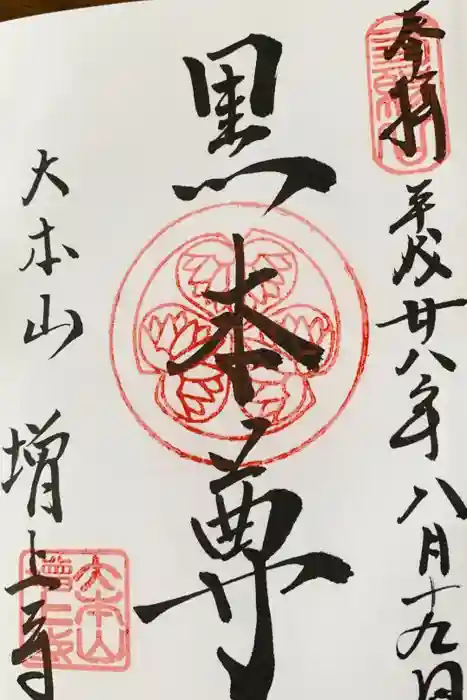 奉拝
平成廿八年八月十九日
黒本尊
大本山
増上寺
大本山
増上寺